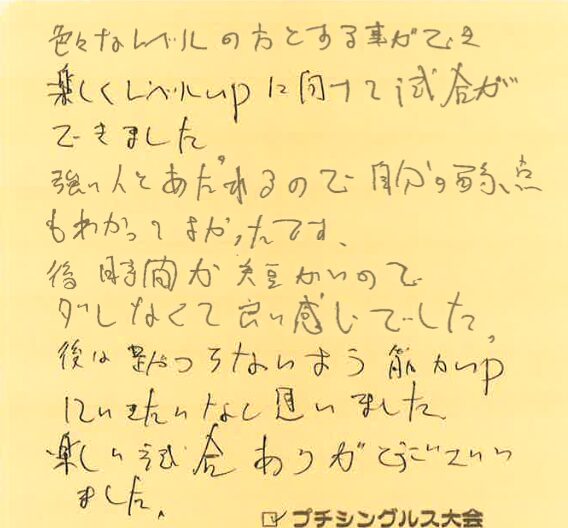 色々なレベルの方とする事ができ
楽しくレベルupに向けて試合が
できました
強い人とあたれるので自分の弱点
もわかってよかったです、
後時間が短かいので
ダレなくて良い感じでした。
後は つらないよう筋力up
にいきたいなと思いました。
楽しい試合ありがとうございい
ました。
☑プチシングルス大会